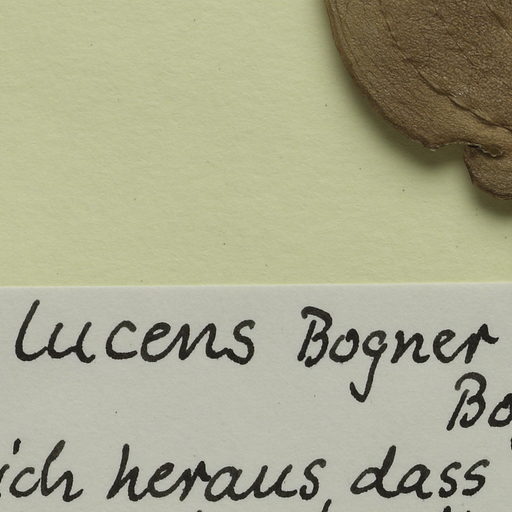 lucens Bogner
Bo
ich heraus, dass